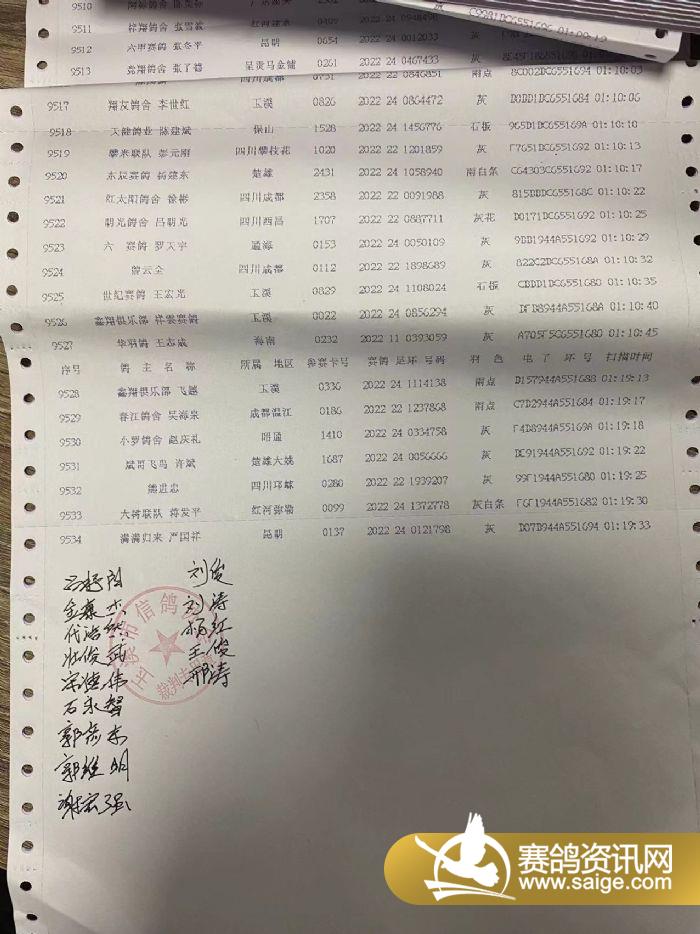 9511 张雪波 0409 2022 24 0948498
9512 六甲赛鸽 张冬平 昆明 0654 2022 24 0012033
9513 竞翔鸽舍 呈贡马金铺 0261 2022 24 0467433
四川成都 0751 2022 22 0846851 雨点 8C002DC6551694 01:10:03
9517 翔友鸽舍 李世红 玉溪 0826 2022 24 0864472 灰 D0BD1DC6551684 01:10:06
9518 天健鸽业 陈建斌 保山 1528 2022 24 1456776 石板 965D1DC655169A 01:10:09
9519 攀米联队 彭元刚 四川攀枝花 1020 2022 22 1201859 灰 F7651DC6551692 01:10:13
9520 东辰赛鸽 杨建东 楚雄 2431 2022 24 1058940 雨白条 C64303C6551692 01:10:17
9521 红太阳鸽舍 徐彬 四川成都 2358 2022 22 0091988 灰 815BBDC655168C 01:10:22
9522 朝光鸽舍 吕朝光 四川西昌 1707 2022 22 0887711 灰花 D0171DC6551692 01:10:25
9523 六 赛鸽 罗天宇 通海 0153 2022 24 0050109 灰 9BB1944A551692 01:10:29
9524 曾云全 四川成都 0112 2022 22 1898689 灰 822C2DC6551680 01:10:32
9525 世纪赛鸽 王宏光 玉溪 0829 2022 24 1108024 石板 CBDD1DC6551680 01:10:35
9526 鑫翔俱乐部 祥云赛鸽 玉溪 0022 2022 24 0856294 灰 DFB8944A55168A 01:10:40
9527 华羽鸽 王志威 海南 0232 2022 11 0393059 灰 A705F5C6551680 01:10:45
序号 鸽 主 名 称 所属 地区 参赛卡号 赛鸽 足环 号码 羽 色 电子 环 号 扫描时间
9528 鑫翔俱乐部 飞越 玉溪 0336 2022 24 1114138 雨点 B157944A551688 01:19:13
9529 春江鸽舍 吴海泉 成都温江 0186 2022 22 1237868 雨点 C7D2944A551684 01:19:17
9530 小罗鸽舍 赵庆礼 昭通 1410 2022 24 0334758 灰 F4D8944A55169A 01:19:18
9531 斌哥飞鸟 许斌 楚雄大姚 1687 2022 24 0056666 灰 DE91944A551692 01:19:22
9532 熊进忠 四川邛崃 0280 2022 22 1939207 灰 99F1944A551680 01:19:25
9533 大树联队 蒋发平 红河弥勒 0099 2022 24 1372778 灰白条 F6F1944A551682 01:19:30
9534 满满归来 严国祥 昆明 0137 2022 24 0121798 灰 D07D944A551694 01:19:33
刘俊
刘涛
杨红
杜俊武 王俊
宋德伟 邢涛
石永智
郭维明
谢宏强
市信鸽
裁判
赛鸽资讯网
www.saige.com